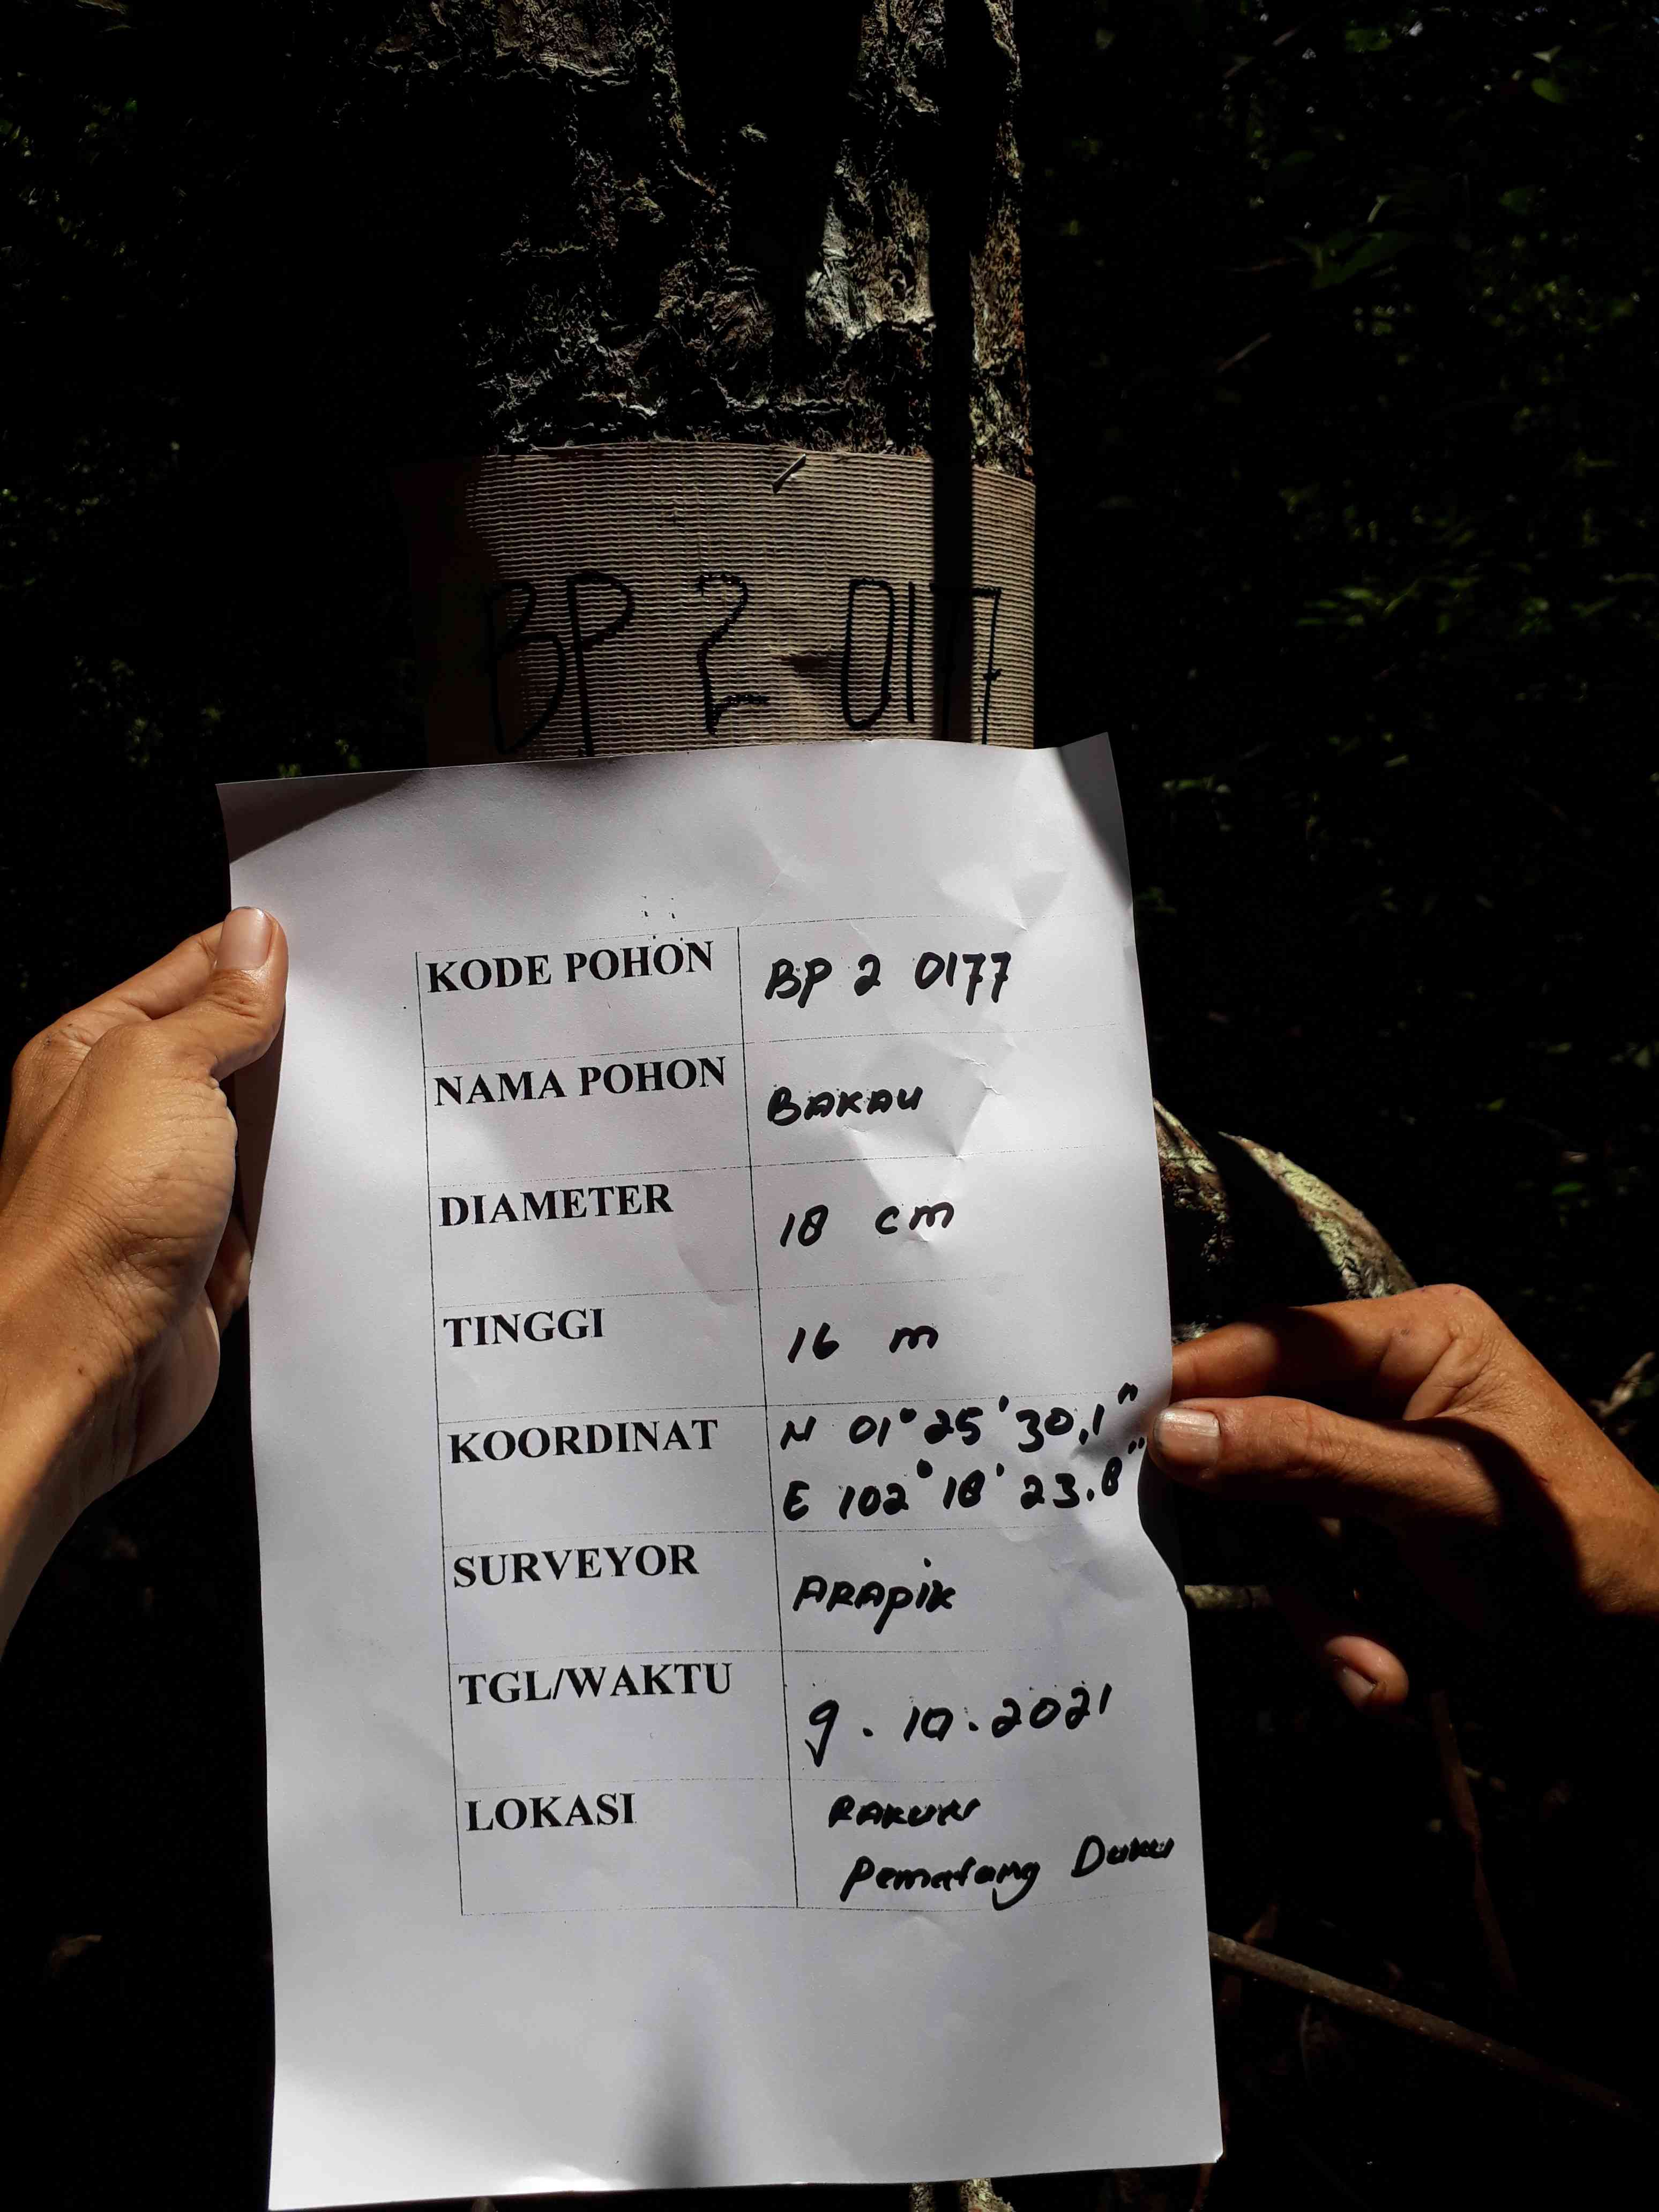 BP 2-0177
KODE POHON BP 2 0177
NAMA POHON BAKAU
DIAMETER 18 cm
TINGGI 16 m
KOORDINAT N 01° 25' 30,1"
E 102° 18' 23.8"
SURVEYOR ARAPIK
TGL/WAKTU 9.10.2021
LOKASI
Pematang Duku